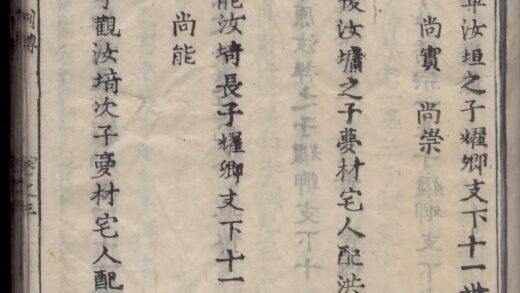 汝垣之子耀卿支下十一世
尚實 尚崇
後汝墉之子夢材宅人配洪
能汝埼長子耀卿支下十一
尚能
觀汝埼次子夢材宅人配